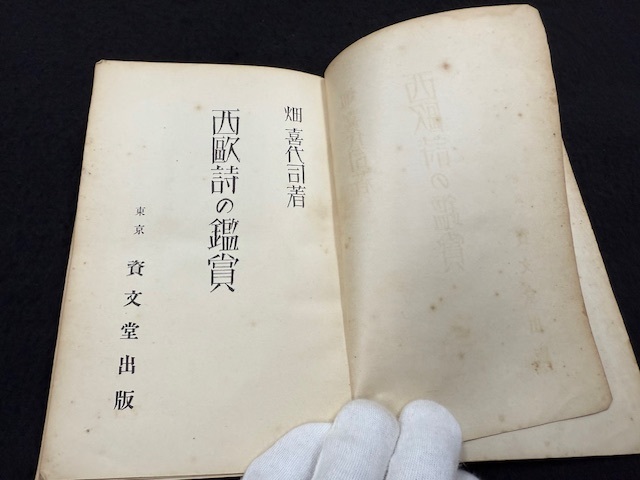 畑喜代司著
西歐詩の鑑賞
東京 資文堂出版